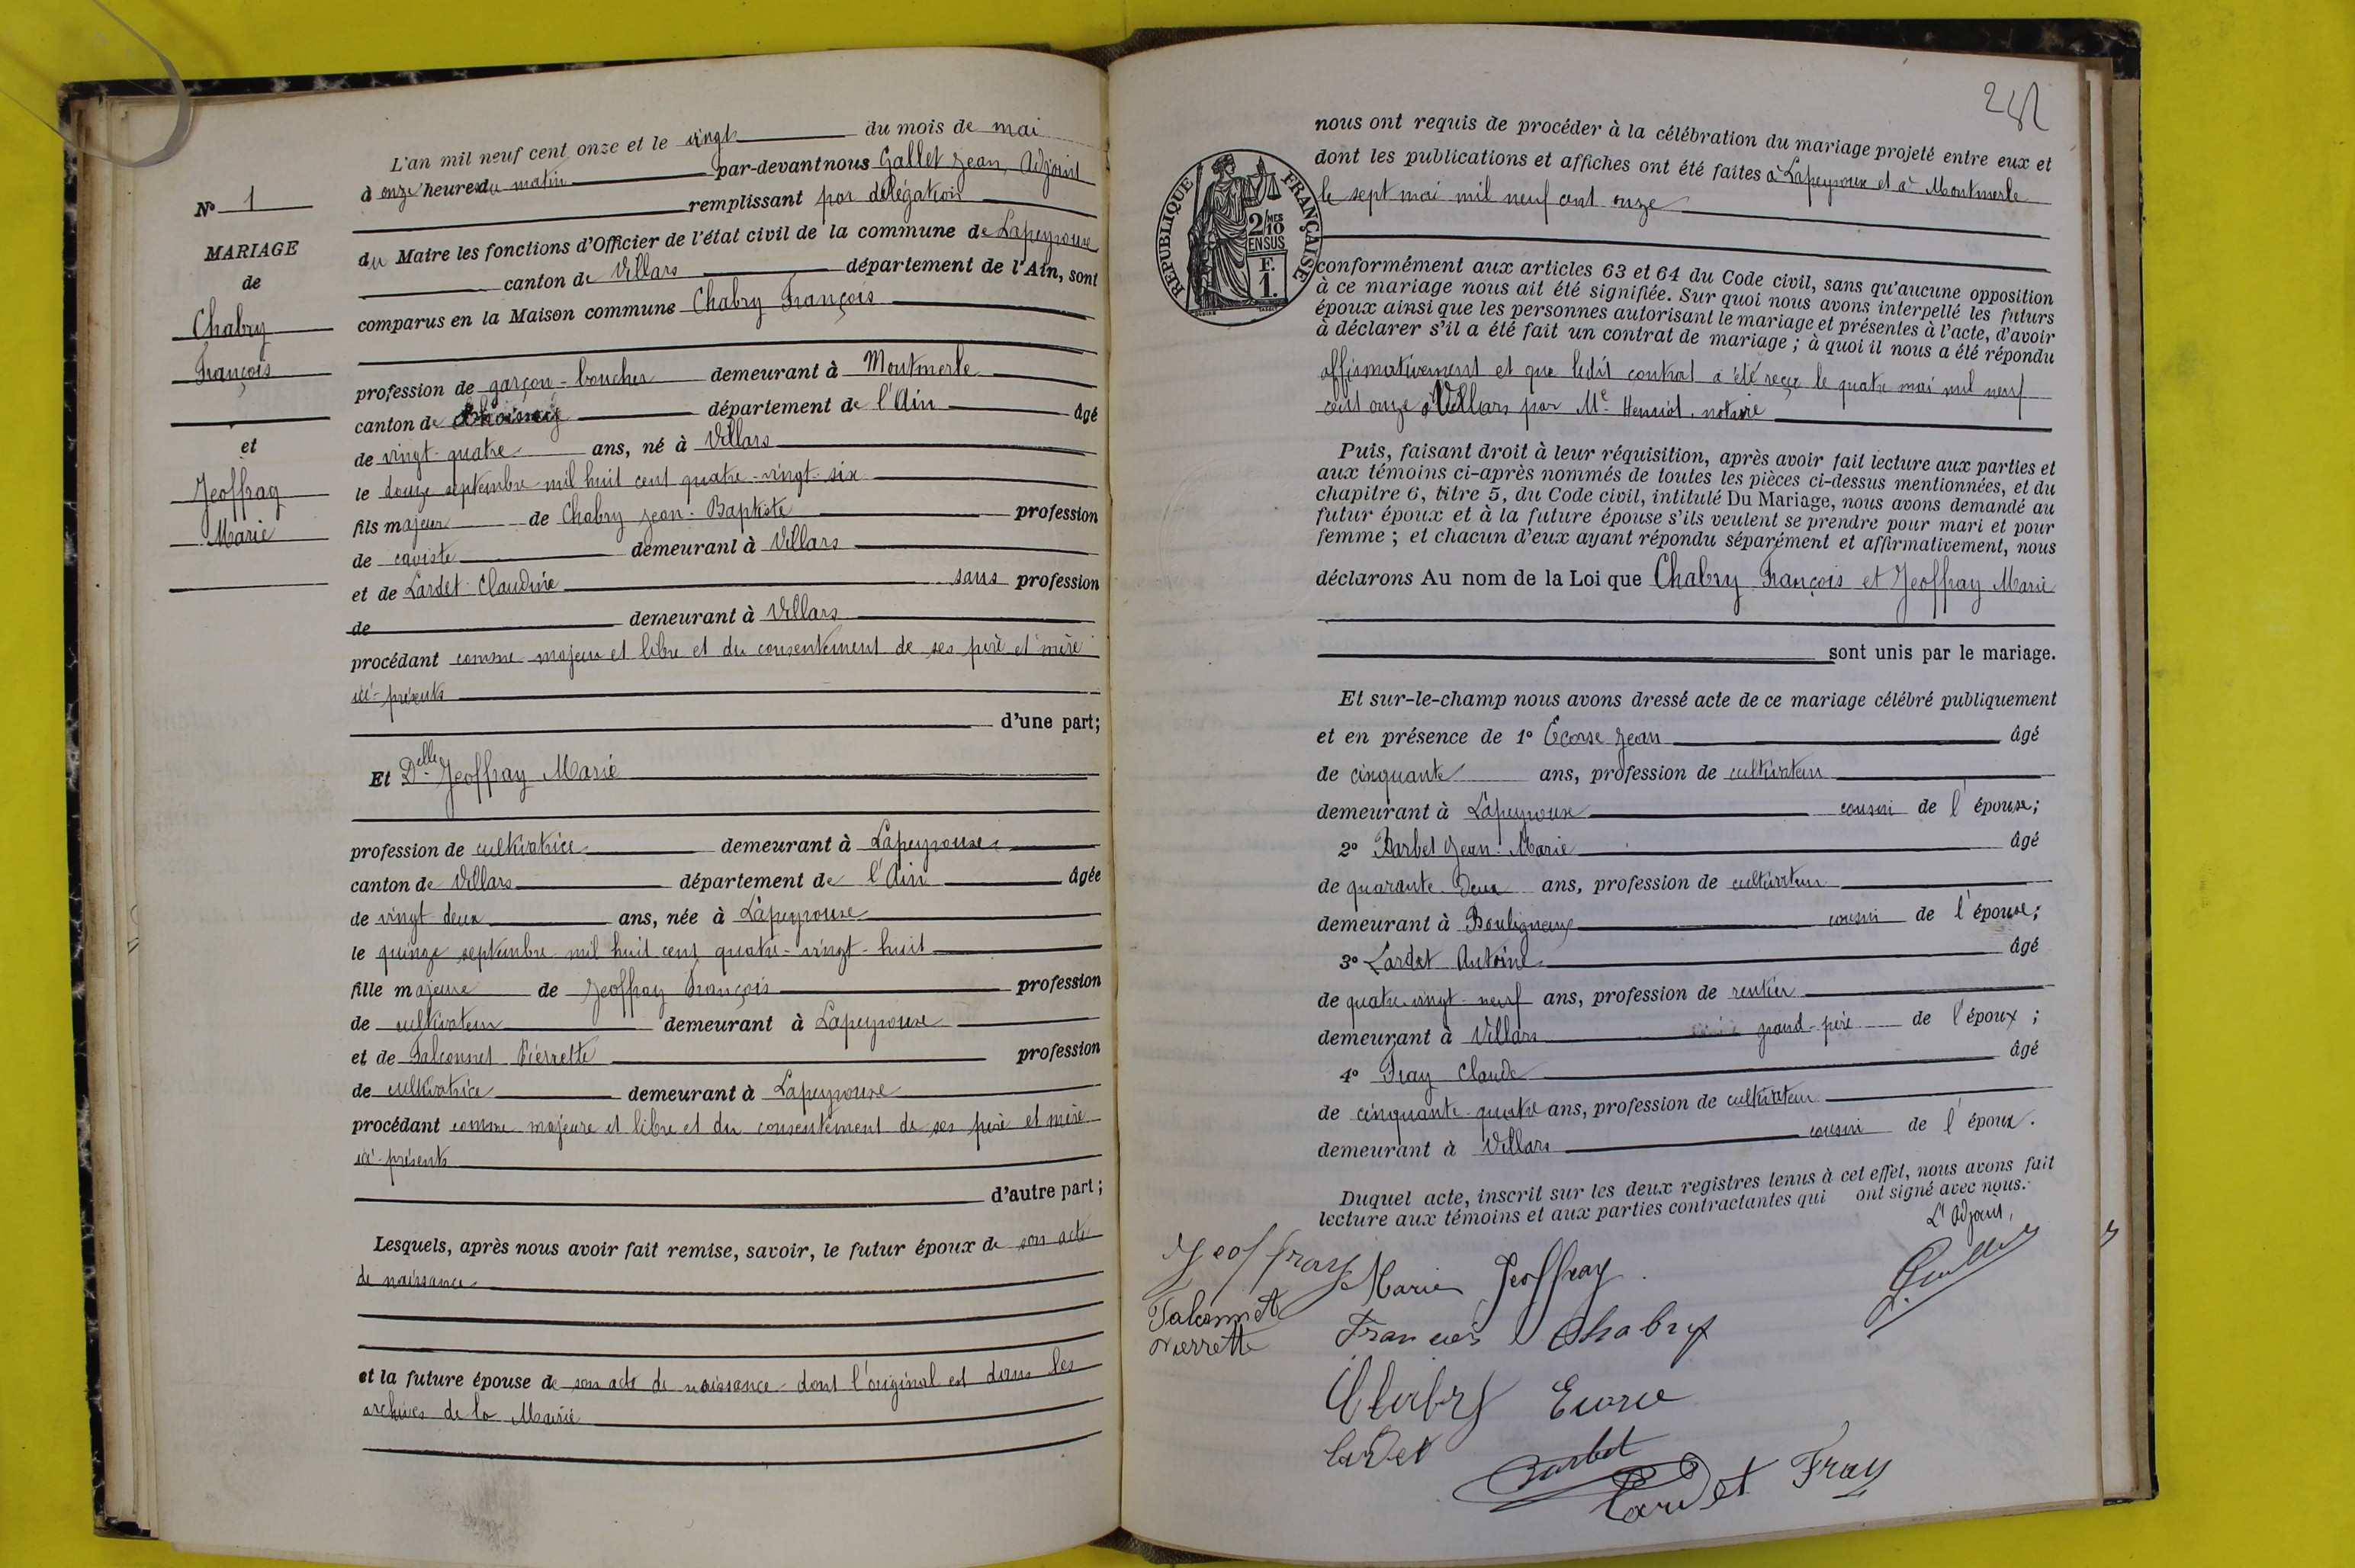 L'an mil neuf cent onze et le vingt du mois de mai
à onze heures du matin par-devant nous Gallet Jean, Adjoint
remplissant par délégation
du Maire les fonctions d'Officier de l'état civil de la commune de Lapeyrouse
canton de Villars département de l'Ain, sont
comparus en la Maison commune Chabry François
profession de garçon-boucher demeurant à Montmerle
canton de département de l'Ain âgé
de vingt-quatre ans, né à Villars
le douze septembre mil huit cent quatre-vingt-six
fils majeur de Chabry Jean-Baptiste profession
de caviste demeurant à Villars
et de Lardet Claudine sans profession
de demeurant à Villars
procédant comme majeur et libre et du consentement de ses père et mère
ici-présents
d'une part;
Et Delle Jeoffray Marie
profession de cultivatrice demeurant à Lapeyrouse
canton de Villars département de l'Ain âgée
de vingt-deux ans, née à Lapeyrouse
le quinze septembre mil huit cent quatre-vingt-huit
fille majeure de Jeoffray François profession
de cultivateur demeurant à Lapeyrouse
et de Falconnet Pierrette profession
de cultivatrice demeurant à Lapeyrouse
procédant comme majeure et libre et du consentement de ses père et mère
ici-présents
d'autre part;
Lesquels, après nous avoir fait remise, savoir, le futur époux de son acte
de naissance
et la future épouse de son acte de naissance dont l'original est dans les
archives de la Mairie
No 1
MARIAGE
de
Chabry
François
et
Jeoffray
Marie
nous ont requis de procéder à la célébration du mariage projeté entre eux et
dont les publications et affiches ont été faites à Lapeyrouse et à Montmerle
le sept mai mil neuf cent onze
RÉPUBLIQUE FRANÇAISE
2/10 MES
EN SUS
F.
1.
conformément aux articles 63 et 64 du Code civil, sans qu'aucune opposition
à ce mariage nous ait été signifiée. Sur quoi nous avons interpellé les futurs
époux ainsi que les personnes autorisant le mariage et présentes à l'acte, d'avoir
à déclarer s'il a été fait un contrat de mariage; à quoi il nous a été répondu
affirmativement et que ledit contrat a été reçu le quatre mai mil neuf
cent onze à Villars par Me notaire
Puis, faisant droit à leur réquisition, après avoir fait lecture aux parties et
aux témoins ci-après nommés de toutes les pièces ci-dessus mentionnées, et du
chapitre 6, titre 5, du Code civil, intitulé Du Mariage, nous avons demandé au
futur époux et à la future épouse s'ils veulent se prendre pour mari et pour
femme; et chacun d'eux ayant répondu séparément et affirmativement, nous
déclarons Au nom de la Loi que Chabry François et Jeoffray Marie
sont unis par le mariage.
Et sur-le-champ nous avons dressé acte de ce mariage célébré publiquement
et en présence de 1o Ecorse Jean âgé
de cinquante ans, profession de cultivateur
demeurant à Lapeyrouse cousin de l'épouse;
2o Barbet Jean-Marie âgé
de quarante deux ans, profession de cultivateur
demeurant à Bouligneux cousin de l'épouse;
3o Lardet Antoine âgé
de quatre-vingt-neuf ans, profession de rentier
demeurant à Villars grand-père de l'époux;
4o Fray Claude âgé
de cinquante-quatre ans, profession de cultivateur
demeurant à Villars cousin de l'époux.
Duquel acte, inscrit sur les deux registres tenus à cet effet, nous avons fait
lecture aux témoins et aux parties contractantes qui ont signé avec nous.
L'Adjoint,
Jeoffray Marie Jeoffray
Falconnet
Pierrette
François Chabry
Chabry Ecorse
Lardet
Barbet
Lardet Fray